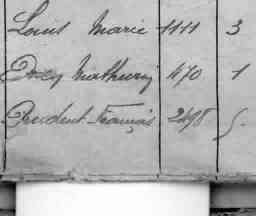 Louis Marie 1111 3
Mathurin 470 1
Prudent François 2498 5